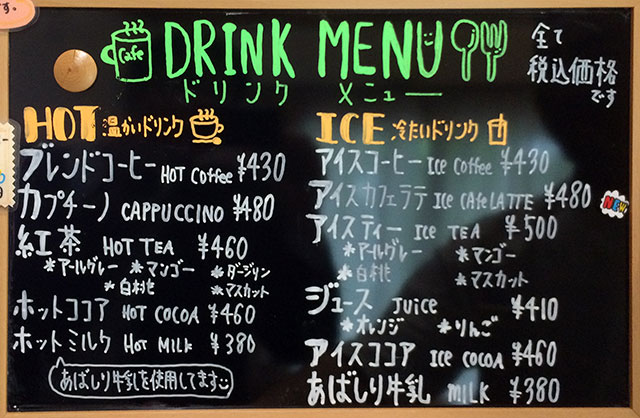 す。
Cafe
DRINK MENU
ドリンク メニュー
全て
税込価格
です
HOT 温かいドリンク
ブレンドコーヒー HOT Coffee ¥430
カプチーノ CAPPUCCINO ¥480
紅茶 HOT TEA ¥460
*アールグレー *マンゴー *ダージリン
*白桃 *マスカット
ホットココア HOT COCOA ¥460
ホットミルク HOT MILK ¥380
あばしり牛乳を使用してます
ICE 冷たいドリンク
アイスコーヒー ICE Coffee ¥430
アイスカフェラテ ICE CAFe LATTE ¥480
NEW
アイスティー ICE TEA ¥500
*アールグレー *マンゴー
*白桃 *マスカット
ジュース JUICE ¥410
*オレンジ *りんご
アイスココア ICE COCOA ¥460
あばしり牛乳 MILK ¥380